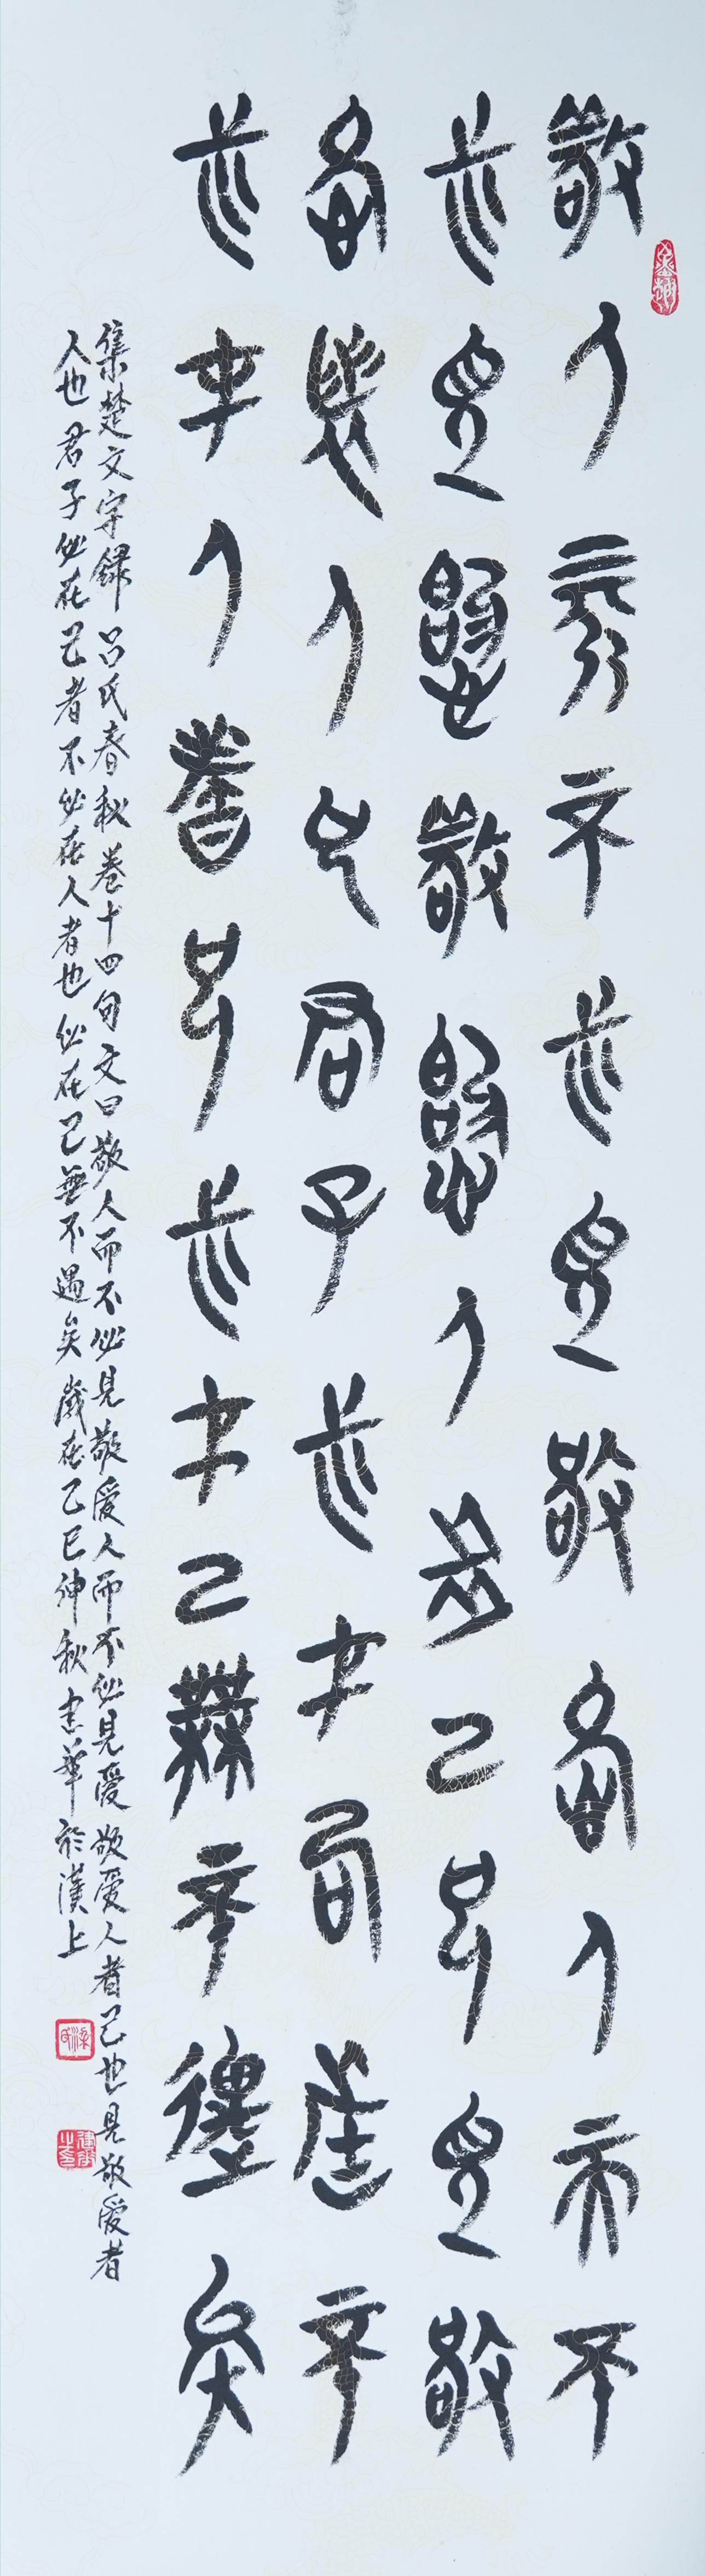 敬人而不必見敬愛人而不
必見愛敬愛人者己也見敬
愛者人也君子必在己者不
必在人者也必在己無不遇矣
集楚文字錄呂氏春秋卷十四句文曰敬人而不必見敬愛人而不必見愛敬愛人者己也見敬愛者
人也君子必在己者不必在人者也必在己無不遇矣歲在乙巳仲秋建華於漢上